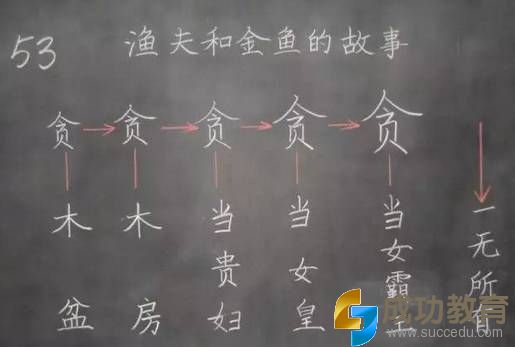 53 渔夫和金鱼的故事
贪 → 贪 → 贪 → 贪 → 贪
木盆
木房
当贵妇
当女皇
当女霸王
一无所有
成功教育
www.succedu.com